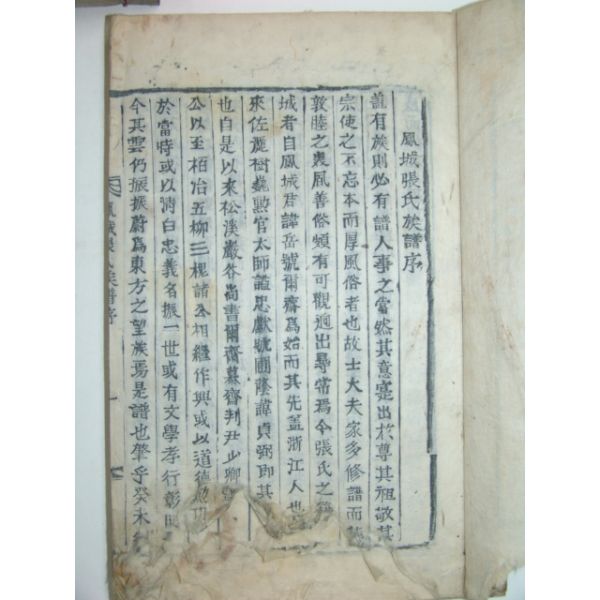 鳳城張氏族譜序
盖有族則必有譜人事之當然其意寔出於尊其祖敬其
宗使之不忘本而厚風俗者也故士大夫家多修譜而
敦睦之義風善俗頗有可觀逈出尋常焉今張氏之
城者自鳳城君諱岳號爾齋爲始而其先盖浙江人也
來佐麗樹勳官太師諡忠獻號圃蔭諱貞弼即其
也自是以來松溪巖谷尚書爾齋慕齋判尹少卿
公以至栢冶五柳三槐諸公相繼作興或以道德
於當時或以淸白忠義名振一世或有文學孝行彰
今其雲仍振振蔚爲東方之望族焉是譜也肇乎癸未